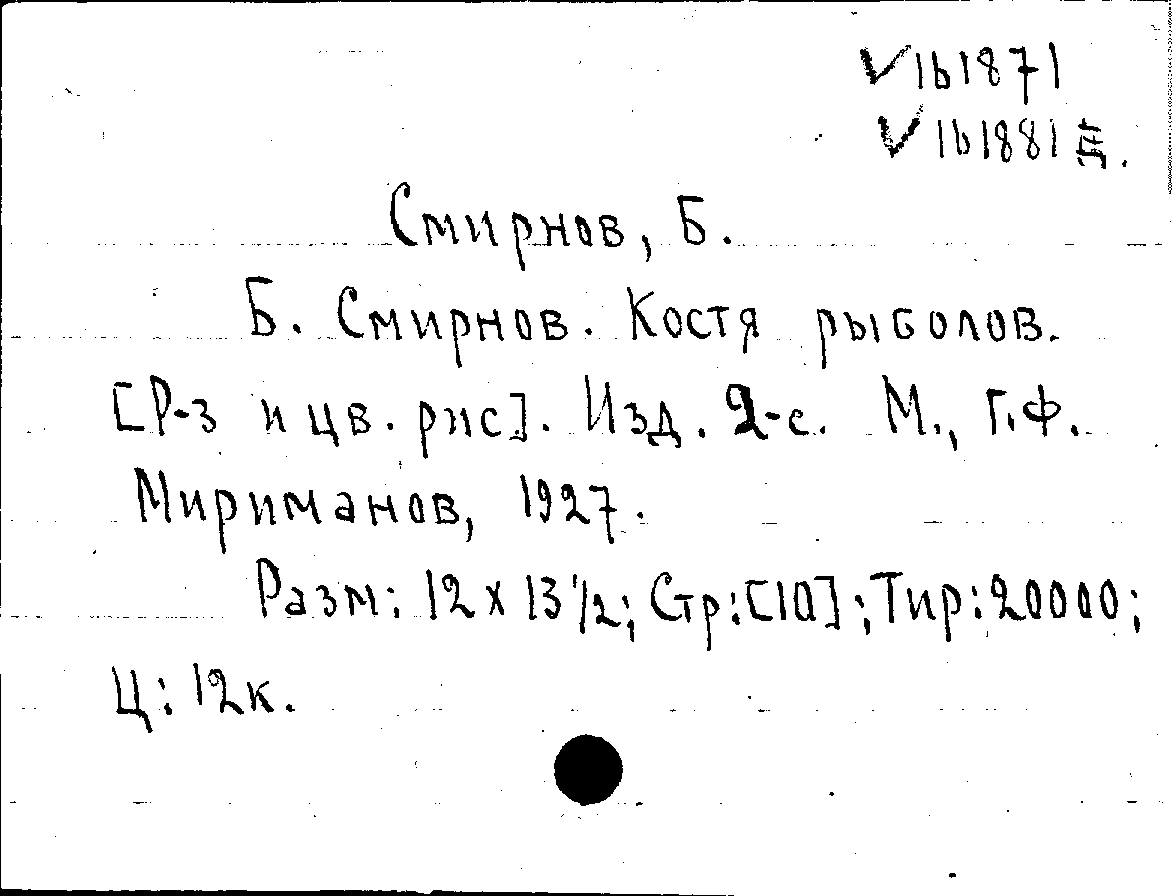 ✓161871
✓161881 Д.
Смирнов, Б.
Б. Смирнов. Костя рыболов.
[Р-з и цв. рис]. Изд. 2-е. М., Г.Ф.
Мириманов, 1927.
Разм: 12 х 13 1/2; Стр: [10]; Тир: 20000;
Ц: 12к.